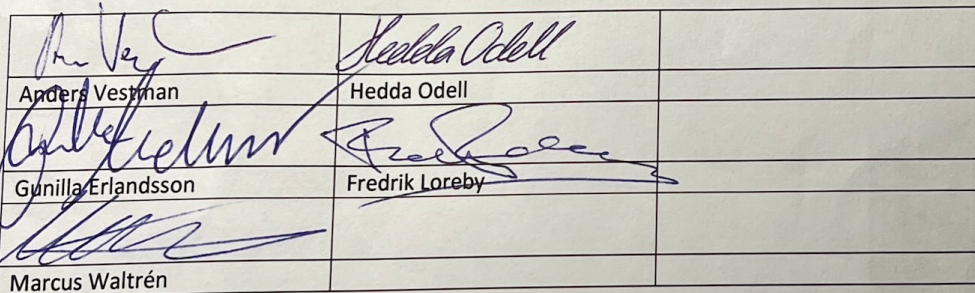 Hedda Odell
Anders Vestman
Hedda Odell
Gunilla Erlandsson
Fredrik Loreby
Marcus Waltrén